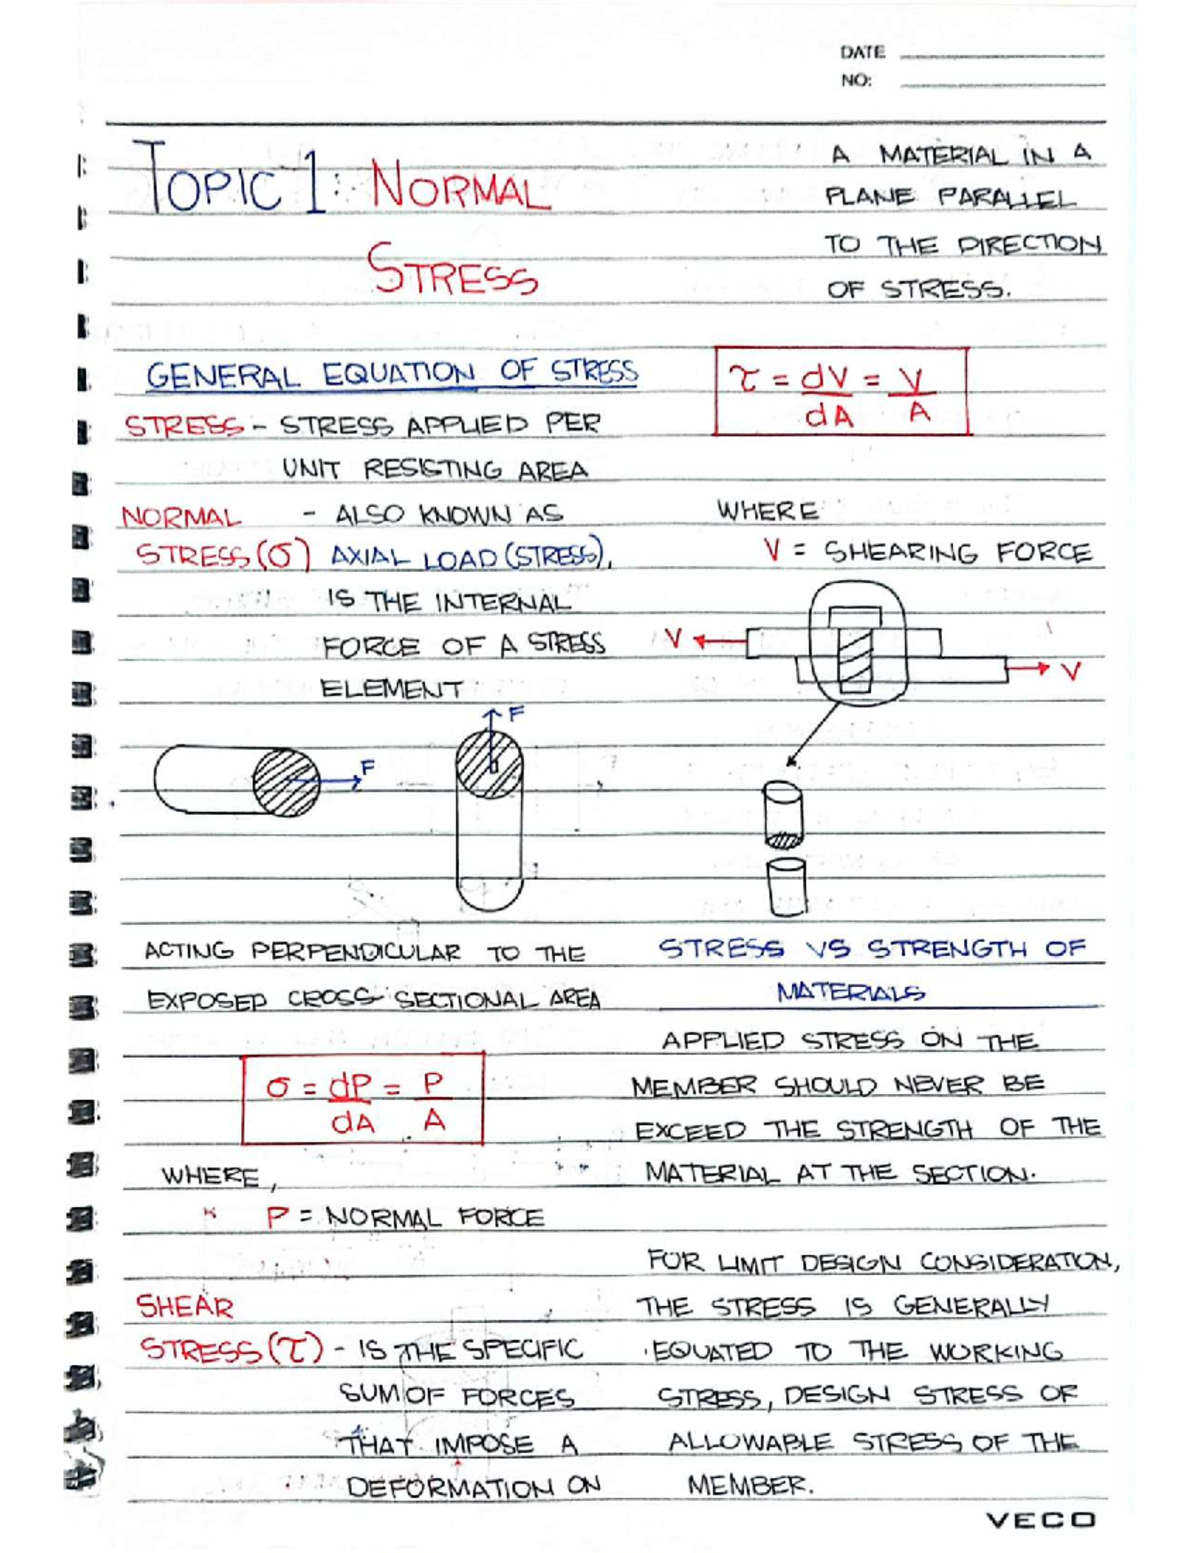 DATE
NO:
TOPIC 1: NORMAL
STRESS
GENERAL EQUATION OF STRESS
STRESS - STRESS APPLIED PER
UNIT RESISTING AREA
NORMAL - ALSO KNOWN AS
STRESS (σ) AXIAL LOAD (STRESS),
IS THE INTERNAL
FORCE OF A STRESS
ELEMENT
F
F
ACTING PERPENDICULAR TO THE
EXPOSED CROSS SECTIONAL AREA
σ = dP/dA = P/A
WHERE,
P = NORMAL FORCE
SHEAR
STRESS (τ) - IS THE SPECIFIC
SUM OF FORCES
THAT IMPOSE A
DEFORMATION ON
A MATERIAL IN A
PLANE PARALLEL
TO THE DIRECTION
OF STRESS.
τ = dV/dA = V/A
WHERE
V = SHEARING FORCE
V
V
STRESS VS STRENGTH OF
MATERIALS
APPLIED STRESS ON THE
MEMBER SHOULD NEVER BE
EXCEED THE STRENGTH OF THE
MATERIAL AT THE SECTION.
FOR LIMIT DESIGN CONSIDERATION,
THE STRESS IS GENERALLY
EQUATED TO THE WORKING
STRESS, DESIGN STRESS OR
ALLOWABLE STRESS OF THE
MEMBER.
VECO